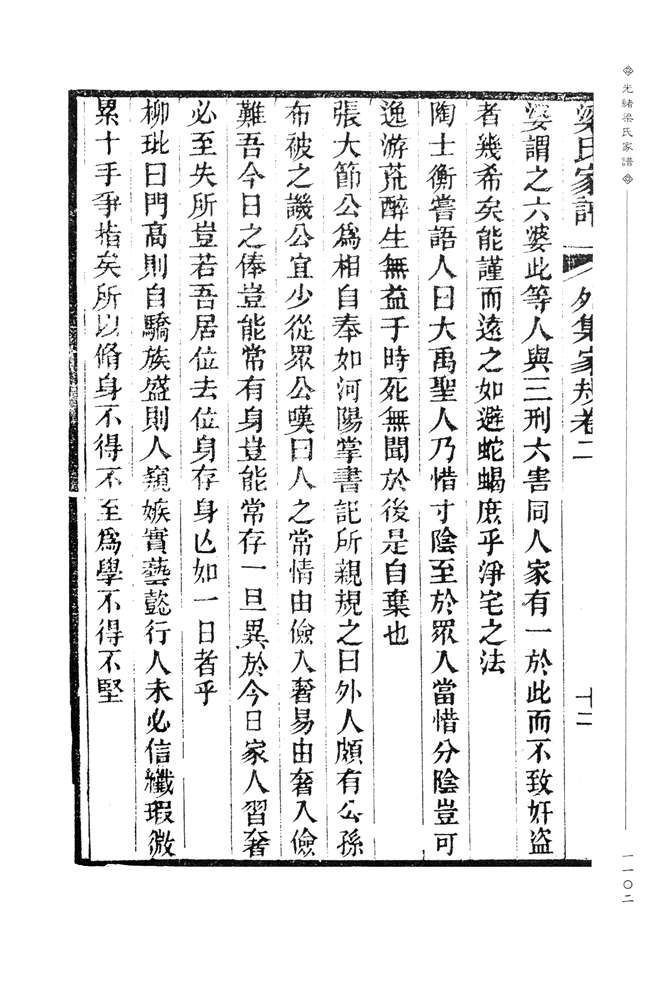 光緒梁氏家譜
一一〇二
梁氏家譜 外集家規卷二
十二
婆謂之六婆此等人與三刑六害同人家有一於此而不致奸盜
者幾希矣能謹而遠之如避蛇蝎庶乎淨宅之法
陶士衡嘗語人曰大禹聖人乃惜寸陰至於眾人當惜分陰豈可
逸游荒醉生無益于時死無聞於後是自棄也
張大節公為相自奉如河陽掌書記所親規之曰外人頗有公孫
布被之譏公宜少從眾公嘆曰人之常情由儉入奢易由奢入儉
難吾今日之俸豈能常有身豈能常存一旦異於今日家人習奢
必至失所豈若吾居位去位身存身亾如一日者乎
柳玭曰門高則自驕族盛則人窺嫉實藝懿行人未必信纖瑕微
累十手爭指矣所以脩身不得不至為學不得不堅